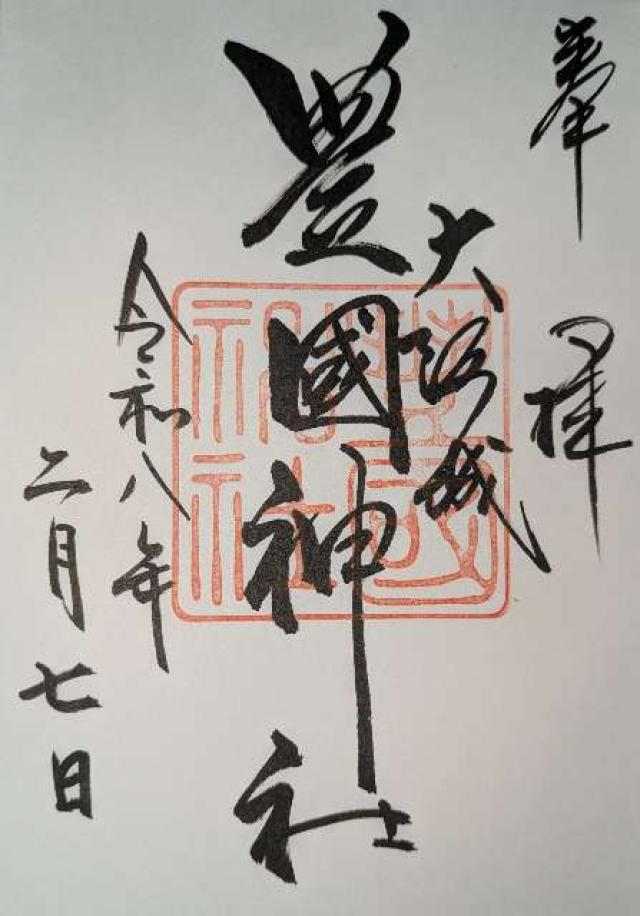 奉拝
大阪城
豊國神社
令和八年
二月七日
豊国神社